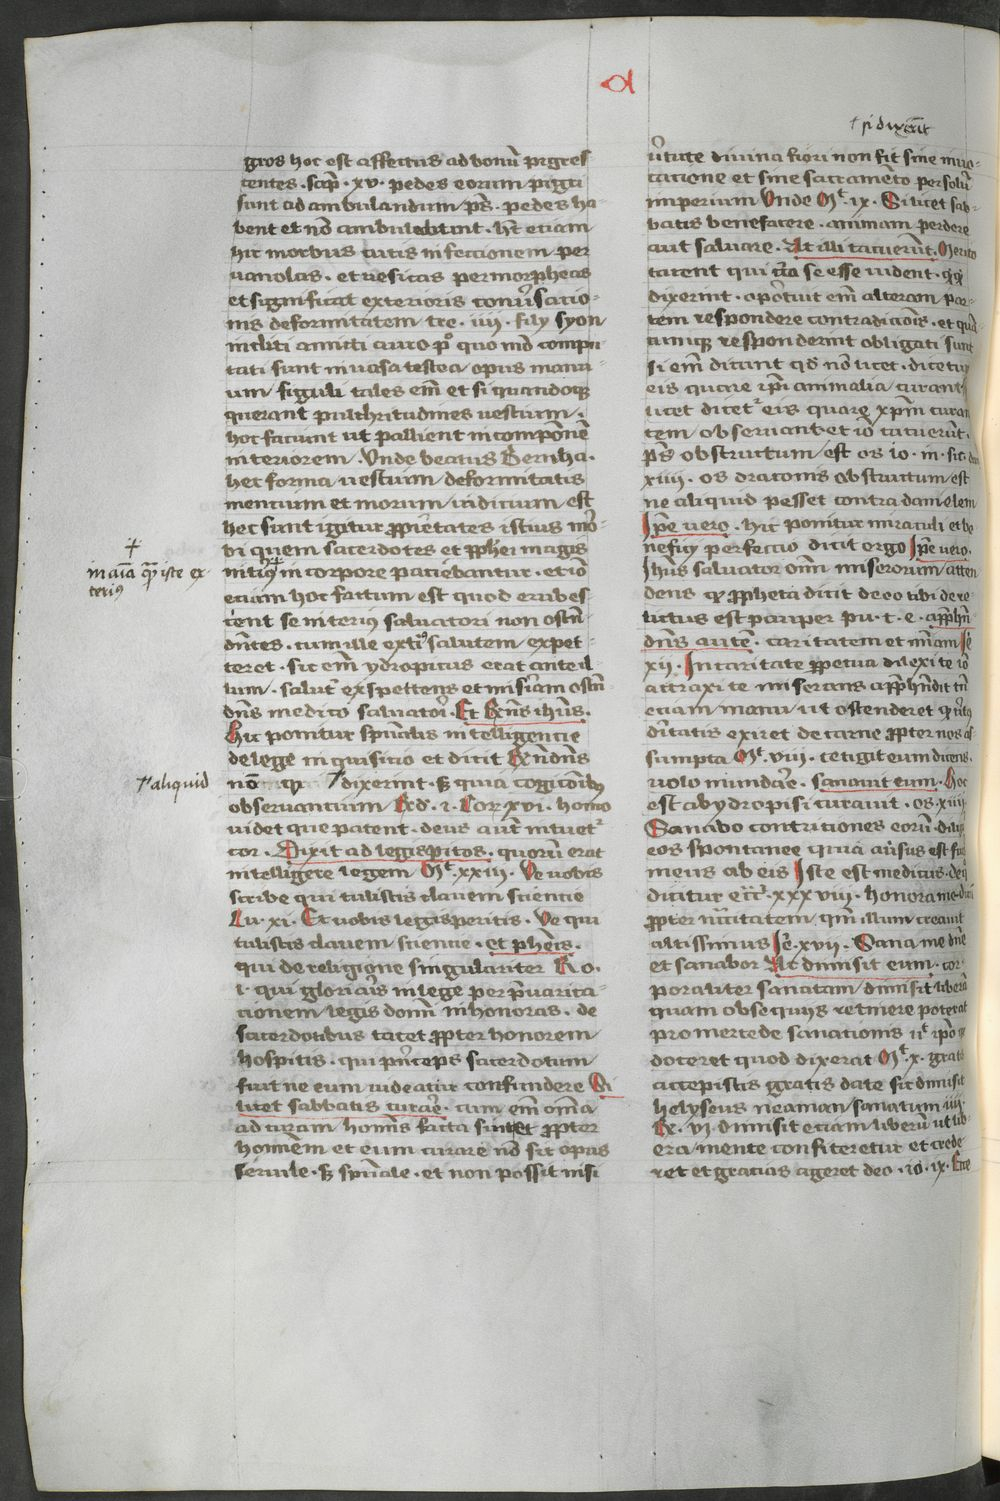 a
† si dixerit
gros hoc est affectus ad bonū pigres
centes . sap̄ . xv . pedes eorum pigri
sunt ad ambulandum . ps̄ . pedes ha
bent et nō ambulabunt . hēt etiam
hic morbus cutis infectionem per
uariolas . et uesicas per morpheas
et significat exterioris conu̓satio-
nis deformitatem tre . iiii . filij syon
incliti amicti auro p̊ quo mō compu
tati sunt in uasa testea opus manu
um figuli tales em̄ et si quandoqꝫ
querant pulchritudines uestium .
hoc faciunt ut pallient incompōnē
interiorem . Vnde beatus Bernha .
hec forma uestium deformitatis
mentium et morum iudicium est
hec sunt igitur ꝓp̓etates istius mo̓
bi quem sacerdotes et ꝓphei magis
int̓ius in corpore patiebantur . et iō
etiam hoc factum est quod erubes
cent se interius saluatori non ostn̄
dn̄tes . cum ille ext̓i⁹ salutem expet-
teret . sic em̄ ydropicus erat ante il
lum . salut̓ exspettens et mis̓iam ostn̄
dn̄s medico saluatori . Et Rn̄s ihūs .
Hic ponitur spūalis intelligentie
de lege inquisitio et dicit Rn̄dn̄s
nō qꝛ † dixerint . sꝫ quia cogitōibꝫ
obseruantium Rd̄ . i . Cor xvi . homo
uidet que patent . deus aūt intuet̉
cor . Dixit ad legisp̄itos . quorū erat
intelligere legem Mt̉ . xxiii . Ve uobis
scribe qui tulistis clauem scientie
Lu . xi . Et uobis legisperitis . Ve qui
tulistis clauem scientie . et phēis .
qui de religione singulariter Ro .
i . qui gloriaris in lege per p̄uarica-
tionem legis domī inhonoras . de
sacerdotibus tacet ꝓpter honorem
hospitis . qui p̄nceps sacerdotum
fuit ne eum uideatur confundere Si
licet sabbatis curare . cum em̄ om̄a
ad curam homīs facta sint et ꝓpter
homīem et eum curare nō sit opus
seruile . sꝫ spūale . et non possit nisi
†
in aīa q̄ꝫ iste ex
terius
† aliquid
u̓tute diuina fiori non fit sine inuo-
catione et sine sacramēto per solū
imperium Vnde Mt̉ . ix . Si licet sab-
batis benefacere . animam perdere
aut saluare . At illi tacuerūt . Merito
tacent qui ita se esse uident . qꝫ qꝫ
dixerint . oportuit em̄ alteram par-
tem respondere contradictōis . et quā
cumqꝫ responderint obligati sunt
si em̄ dicunt qd̄ nō licet . dicetur
eis quare ipī animalia curant . si
licet dicet̉ eis quare xpm̄ curan
tem obseruant . et iō tacuerūt .
ps̄ obstructum est os lo . in . sic . dan
xiiii . os draconis obstructum est
ne aliquid posset contra danielem
Ipē uero . hic ponitur miraculi et be
neficij perfectio dicit ergo Ipē uero .
Ihūs saluator om̄i miserorum atten
dens qꝫ ꝓpheta dicit deo tibi dere
lictus est pauper pu . t . e . app̄hn̄
dn̄s autē . caritatem et mīam Ie
xii . In caritate ꝓpetua dilexi te iō
attraxi te miserans app̄hn̄dit tn̄
etiam manu ut ostenderet qꝫ u̓t⁹
di̓tatis exiret de carne ꝓpter nos as
sumpta Mt̉ . viii . tetigit eum dicens .
uolo mundare . sanauit eum . Hoc
est ab ydropisi curauit . os . xiiii
Sanabo contritiones eorū . dilig
eos spontanee quia auersus est fu
meus ab eis Iste est medicus . de q
dicitur ecc̄i . xxxviii . honora medici
ꝓpter nec̄itatem . qm̄ illum creauit
altissimus Ie . xvii . Sana me dn̄e
et sanabor At dimisit eum . cor
poraliter sanatam dimisit liberā
quam obsequijs retinere poterat
pro mercede sanationis ut ipō q
doceret quod dixerat Mt̉ . x . gratis
accepistis gratis date sic dimisit
helyseus neaman sanatum iiii .
Re . vi . dimisit etiam liberū ut lib-
era mente confiteretur et crede
ret et gracias ageret deo . io . ix . Ecce